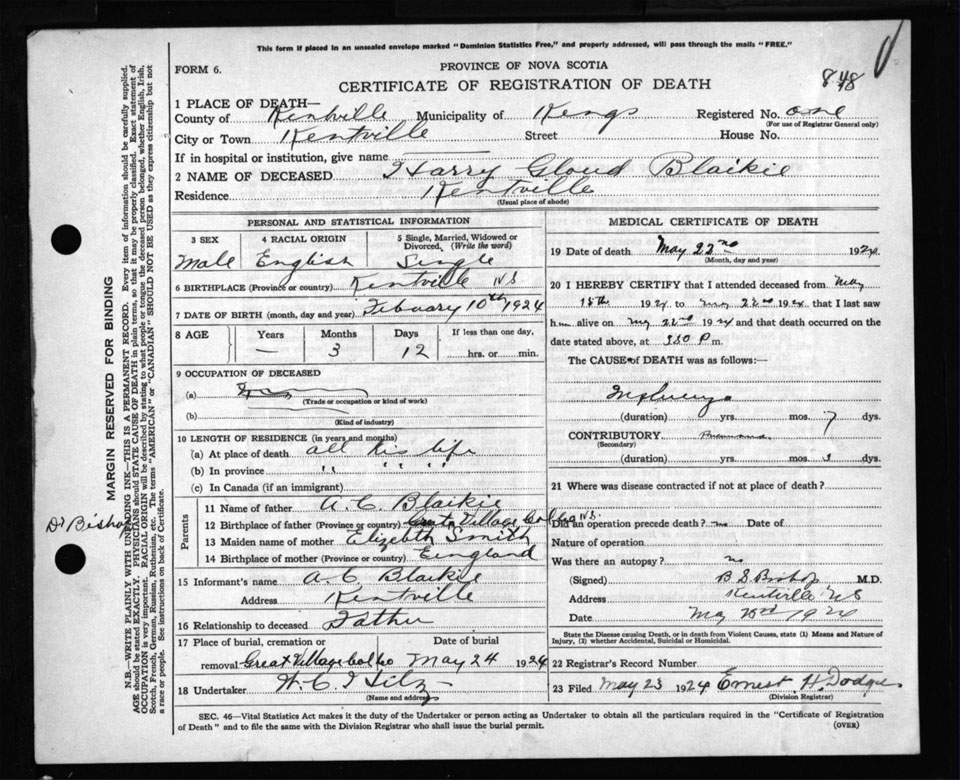 This form if placed in an unsealed envelope marked "Dominion Statistics Free," and properly addressed, will pass through the mails "FREE."
FORM 6.
PROVINCE OF NOVA SCOTIA
CERTIFICATE OF REGISTRATION OF DEATH
848
1 PLACE OF DEATH—
County of Kentville Municipality of Kings Registered No. one
(For use of Registrar General only)
City or Town Kentville Street House No.
If in hospital or institution, give name
2 NAME OF DECEASED Harry Gloud Blaikie
Residence Kentville
(Usual place of abode)
PERSONAL AND STATISTICAL INFORMATION
3 SEX 4 RACIAL ORIGIN 5 Single, Married, Widowed or Divorced, (Write the word)
Male English Single
6 BIRTHPLACE (Province or country) Kentville N S
7 DATE OF BIRTH (month, day and year) Febuary 10th 1924
8 AGE Years Months Days If less than one day,
— 3 12 hrs. or min.
9 OCCUPATION OF DECEASED
(a)
(Trade or occupation or kind of work)
(b)
(Kind of industry)
10 LENGTH OF RESIDENCE (in years and months)
(a) At place of death all his life
(b) In province " " " "
(c) In Canada (if an immigrant)
Parents
11 Name of father A. C. Blaikie
12 Birthplace of father (Province or country) Great Village Col Co N.S.
13 Maiden name of mother Elizebth Smith
14 Birthplace of mother (Province or country) Eingland
15 Informant's name A. C Blaikie
Address Kentville
16 Relationship to deceased Father
17 Place of burial, cremation or Date of burial
removal Great Village Col Co May 24 1924
18 Undertaker W. C. Hilz
(Name and address)
MEDICAL CERTIFICATE OF DEATH
19 Date of death May 22nd 1924
(Month, day and year)
20 I HEREBY CERTIFY that I attended deceased from May
15th 1924 to May 22nd 1924, that I last saw
him alive on May 22nd 1924 and that death occurred on the
date stated above, at 3:30 P m.
The CAUSE of DEATH was as follows:—
Influenza
(duration) yrs. mos. 7 dys.
CONTRIBUTORY Pneumonia
(Secondary)
(duration) yrs. mos. 3 dys.
21 Where was disease contracted if not at place of death?
Did an operation precede death? no Date of
Nature of operation
Was there an autopsy? no
(Signed) B S Bishop M.D.
Address Kentville N S
Date May 1924
State the Disease causing Death, or in death from Violent Causes, state (1) Means and Nature of Injury, (2) whether Accidental, Suicidal or Homicidal.
22 Registrar's Record Number
23 Filed May 23 1924 Ernest H. Dodge
(Division Registrar)
SEC. 46—Vital Statistics Act makes it the duty of the Undertaker or person acting as Undertaker to obtain all the particulars required in the "Certificate of Registration
of Death" and to file the same with the Division Registrar who shall issue the burial permit. (OVER)
Dr Bishop
MARGIN RESERVED FOR BINDING
N.B.—WRITE PLAINLY WITH UNFADING INK—THIS IS A PERMANENT RECORD. Every item of information should be carefully supplied.
AGE should be stated EXACTLY. PHYSICIANS should STATE CAUSE OF DEATH in plain terms, so that it may be properly classified. Exact statement of
OCCUPATION is very important. RACIAL ORIGIN will be described by stating to what people or tongue the deceased person belonged, whether English, Irish,
Scotch, French, German, Russian, Ruthenian, etc. The terms "AMERICAN" or "CANADIAN" SHOULD NOT BE USED as they express citizenship but not
a race or people. See instructions on back of Certificate.